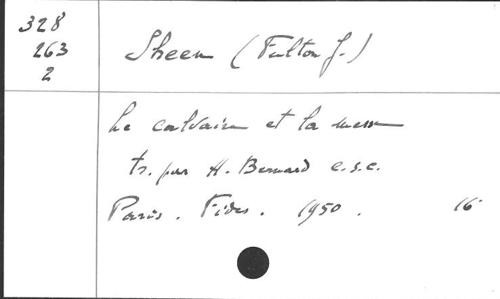 328
263
2
Sheen (Fulton J.)
Le calvaire et la messe
tr. par H. Bernard c.s.c.
Paris. Fides. 1950. 16